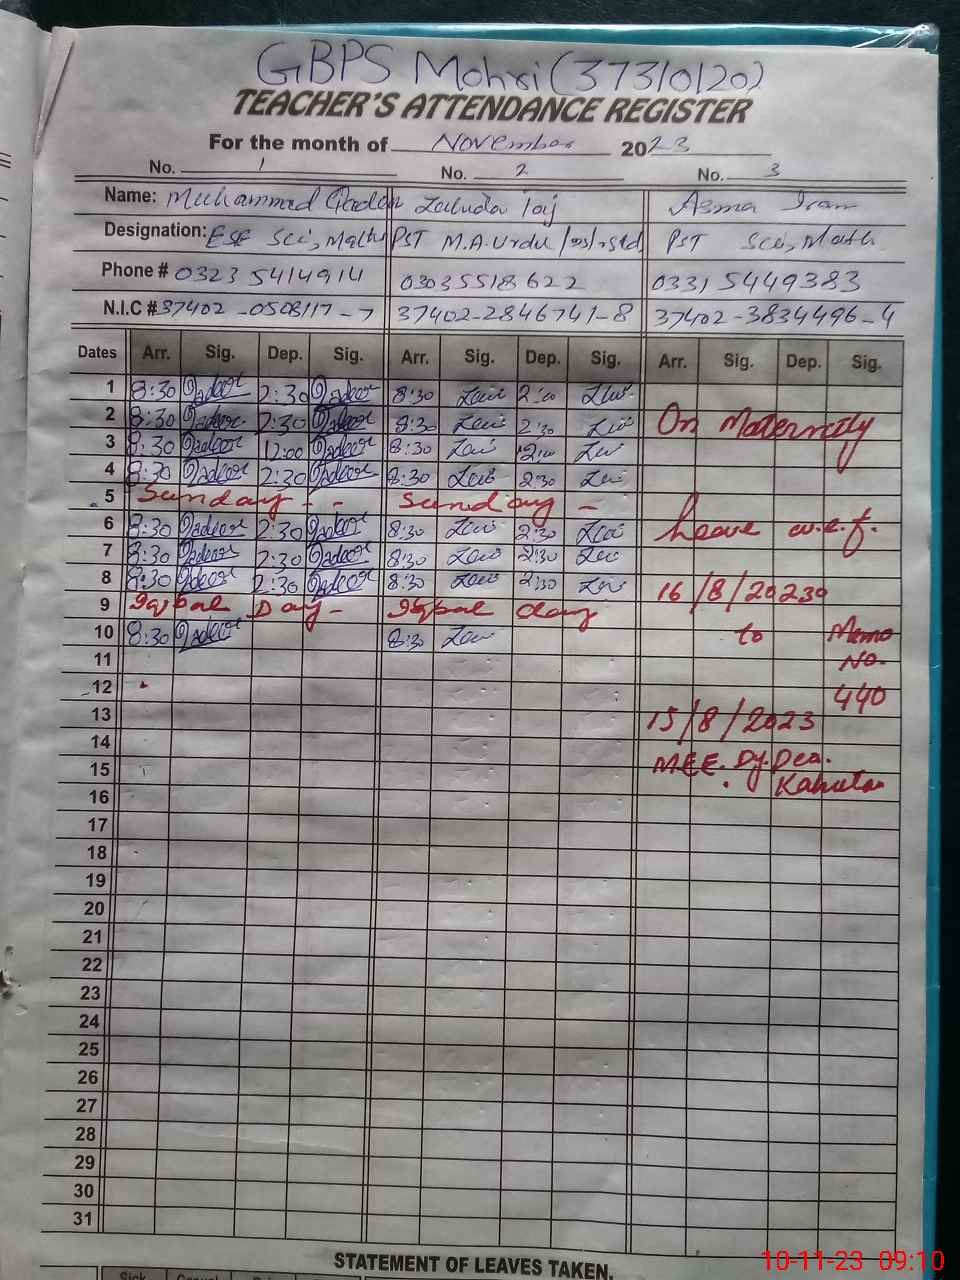 GBPS Mohri (37310120)
TEACHER'S ATTENDANCE REGISTER
For the month of November 2023
No. 1 No. 2 No. 3
Name: Muhammad Qadeer Zahida Taj Asma Iram
Designation: ESE Sci, Maths PST M.A. Urdu PST Sci, Math
Phone # 0323 5414914 03035518622 0331 5449383
N.I.C # 37402-0508117-7 37402-2846741-8 37402-3834496-4
Dates Arr. Sig. Dep. Sig. Arr. Sig. Dep. Sig. Arr. Sig. Dep. Sig.
1 8:30 Qadeer 2:30 Qadeer 8:30
2 8:30 Qadeer 2:30 Qadeer 8:30 2:30 On Maternity
3 8:30 Qadeer 12:00 Qadeer 8:30 12:00
4 8:30 Qadeer 2:30 Qadeer 8:30 2:30
5 Sunday - - Sunday -
6 8:30 Qadeer 2:30 Qadeer 8:30 2:30 Leave w.e.f.
7 8:30 Qadeer 2:30 Qadeer 8:30 2:30
8 8:30 Qadeer 2:30 Qadeer 8:30 2:30 16/8/2023
9 Iqbal Day - Iqbal day
10 8:30 Qadeer 8:30 to Memo
11 No.
12 440
13 15/8/2023
14
15 MEE. Dy. Deo.
16 Kahuta
17
18
19
20
21
22
23
24
25
26
27
28
29
30
31
STATEMENT OF LEAVES TAKEN.
Sick Casual
10-11-23 09:10